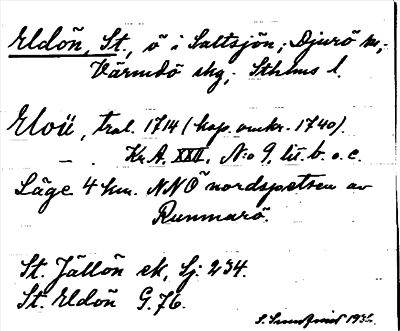 Eldön, St., ö i Saltsjön; Djurö sn,
Värmdö skg; Sthlms l.
Eloü, tral. 1714 (kop. omkr. 1740).
Kr.A. XXII, N:o 9, lit. b. o. c.
Läge 4 km. NNÖ nordspetsen av
Runmarö.
St. Jällön ek, Sj. 234.
St. Eldön G. 76.
S. Sundqvist 193